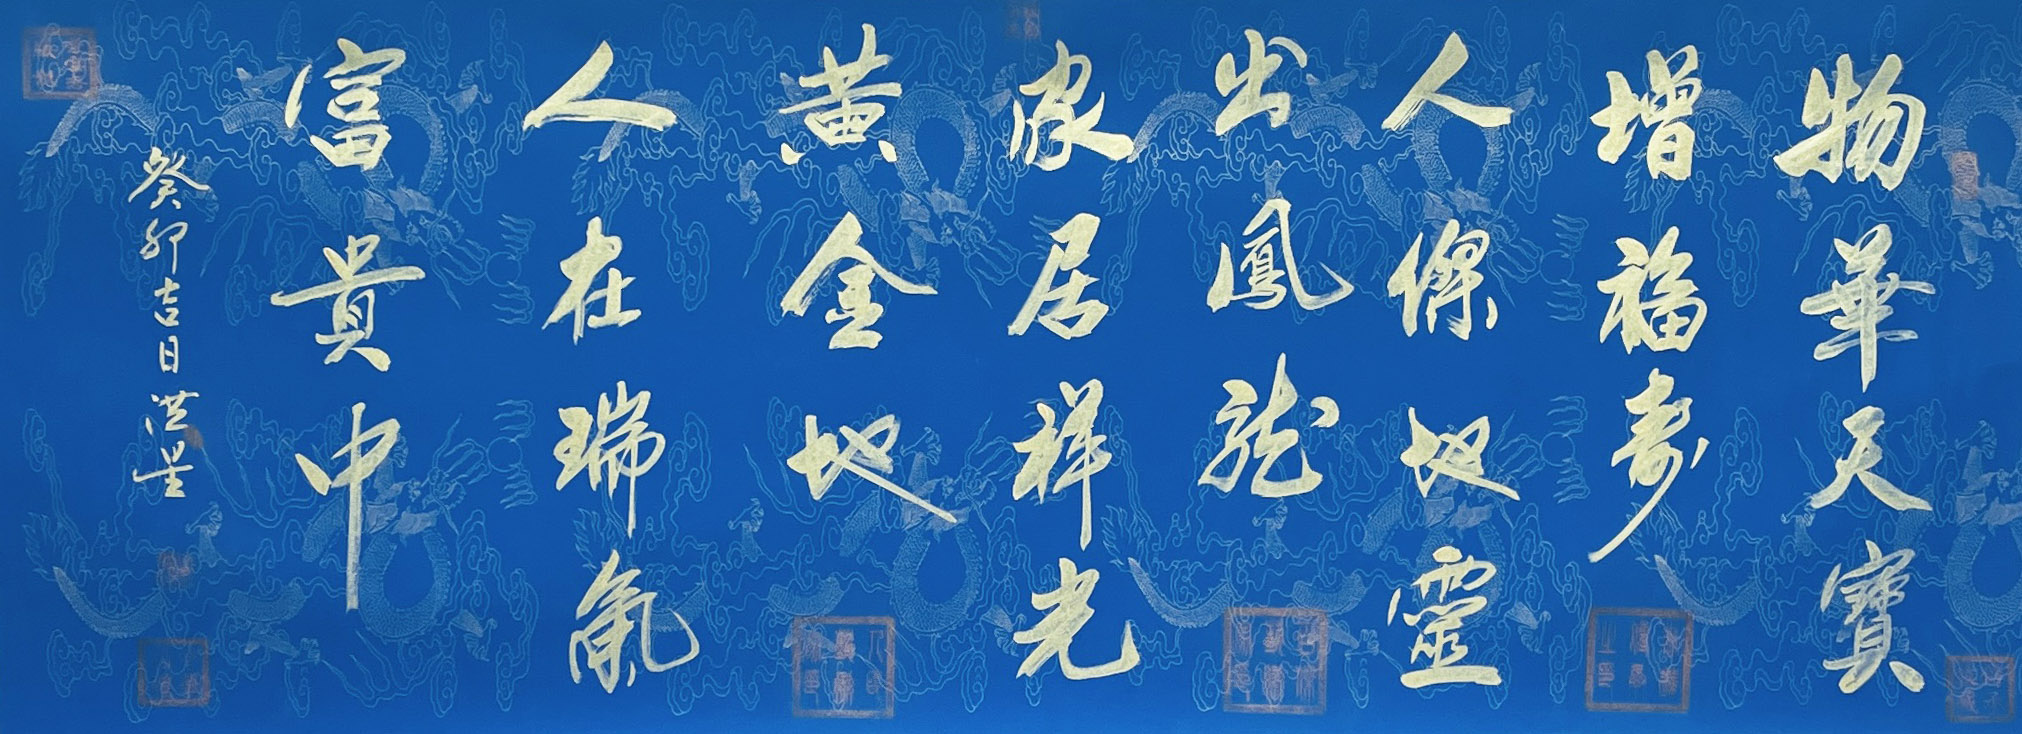 物華天寶
增福壽
人傑地靈
出鳳龍
家居祥光
黃金地
人在瑞氣
富貴中
癸卯吉日洪星